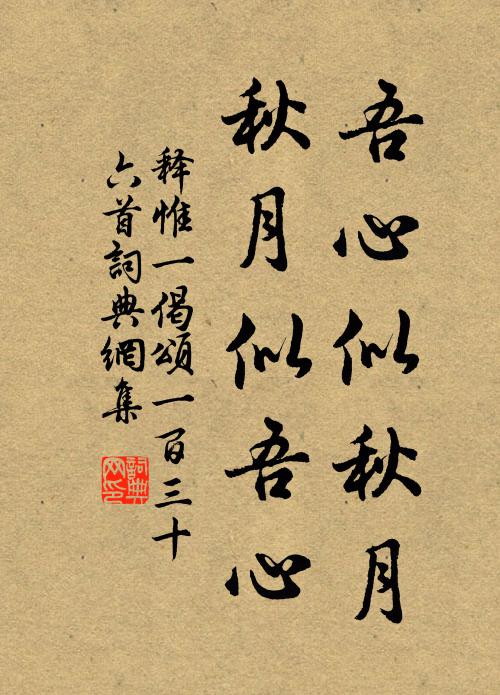 吾心似秋月
秋月似吾心
释惟一偈頌一百三十
六首詞典網集
詞典网印